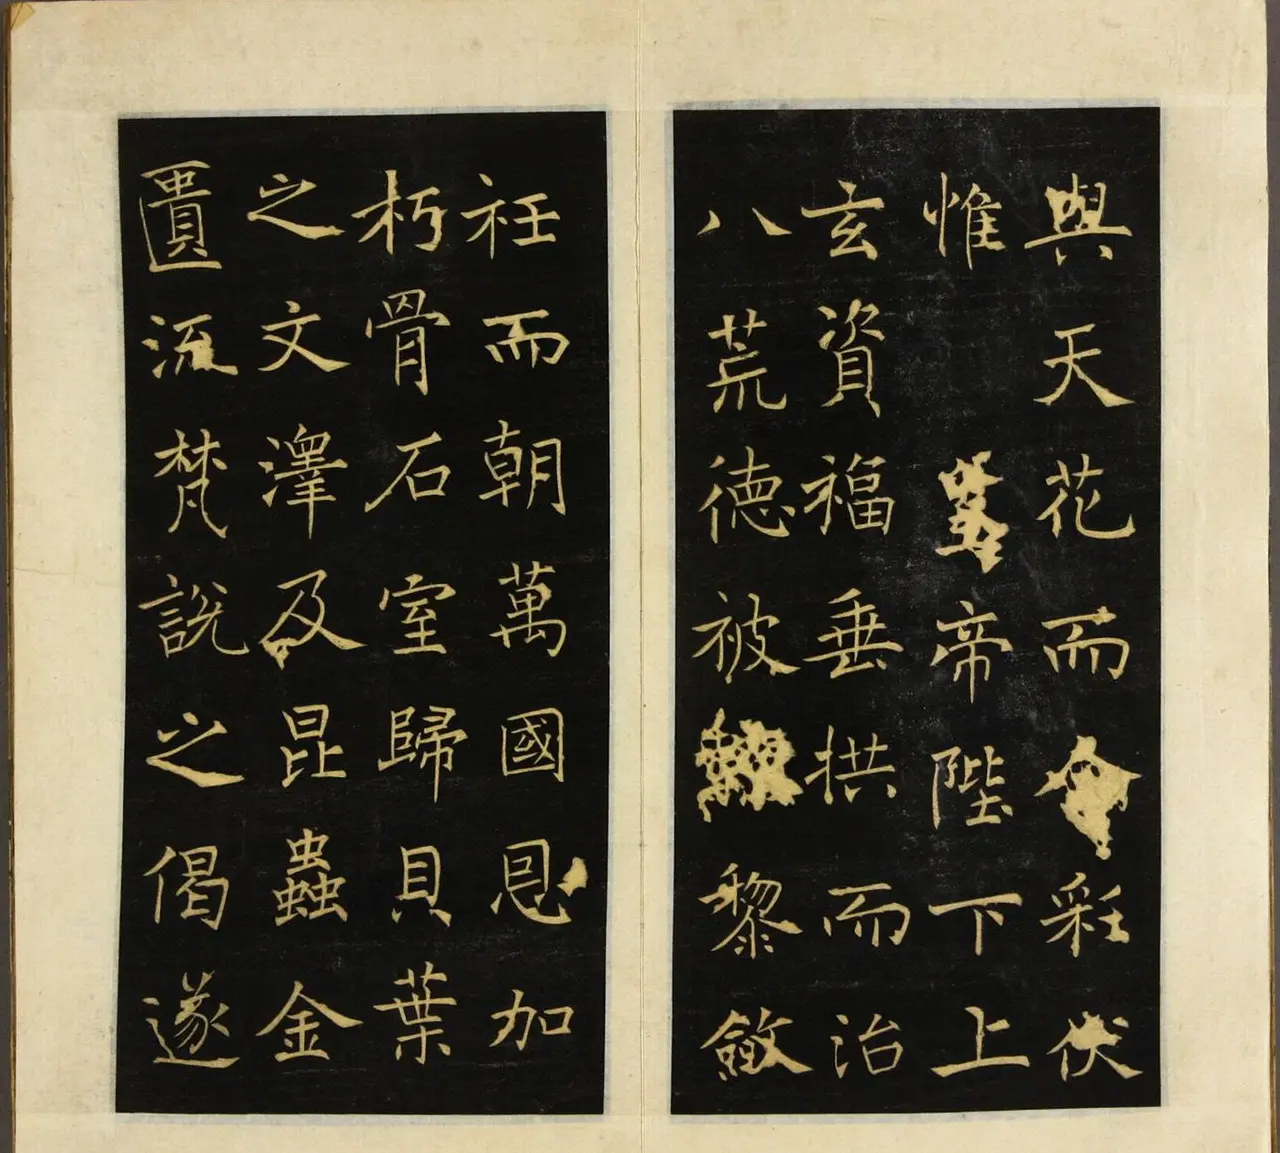 與天花而彩伏
惟帝陛下上
玄資福垂拱而治
八荒德被黎斂
衽而朝萬國恩加
朽骨石室歸貝葉
之文澤及昆蟲金
匱流梵說之偈遂